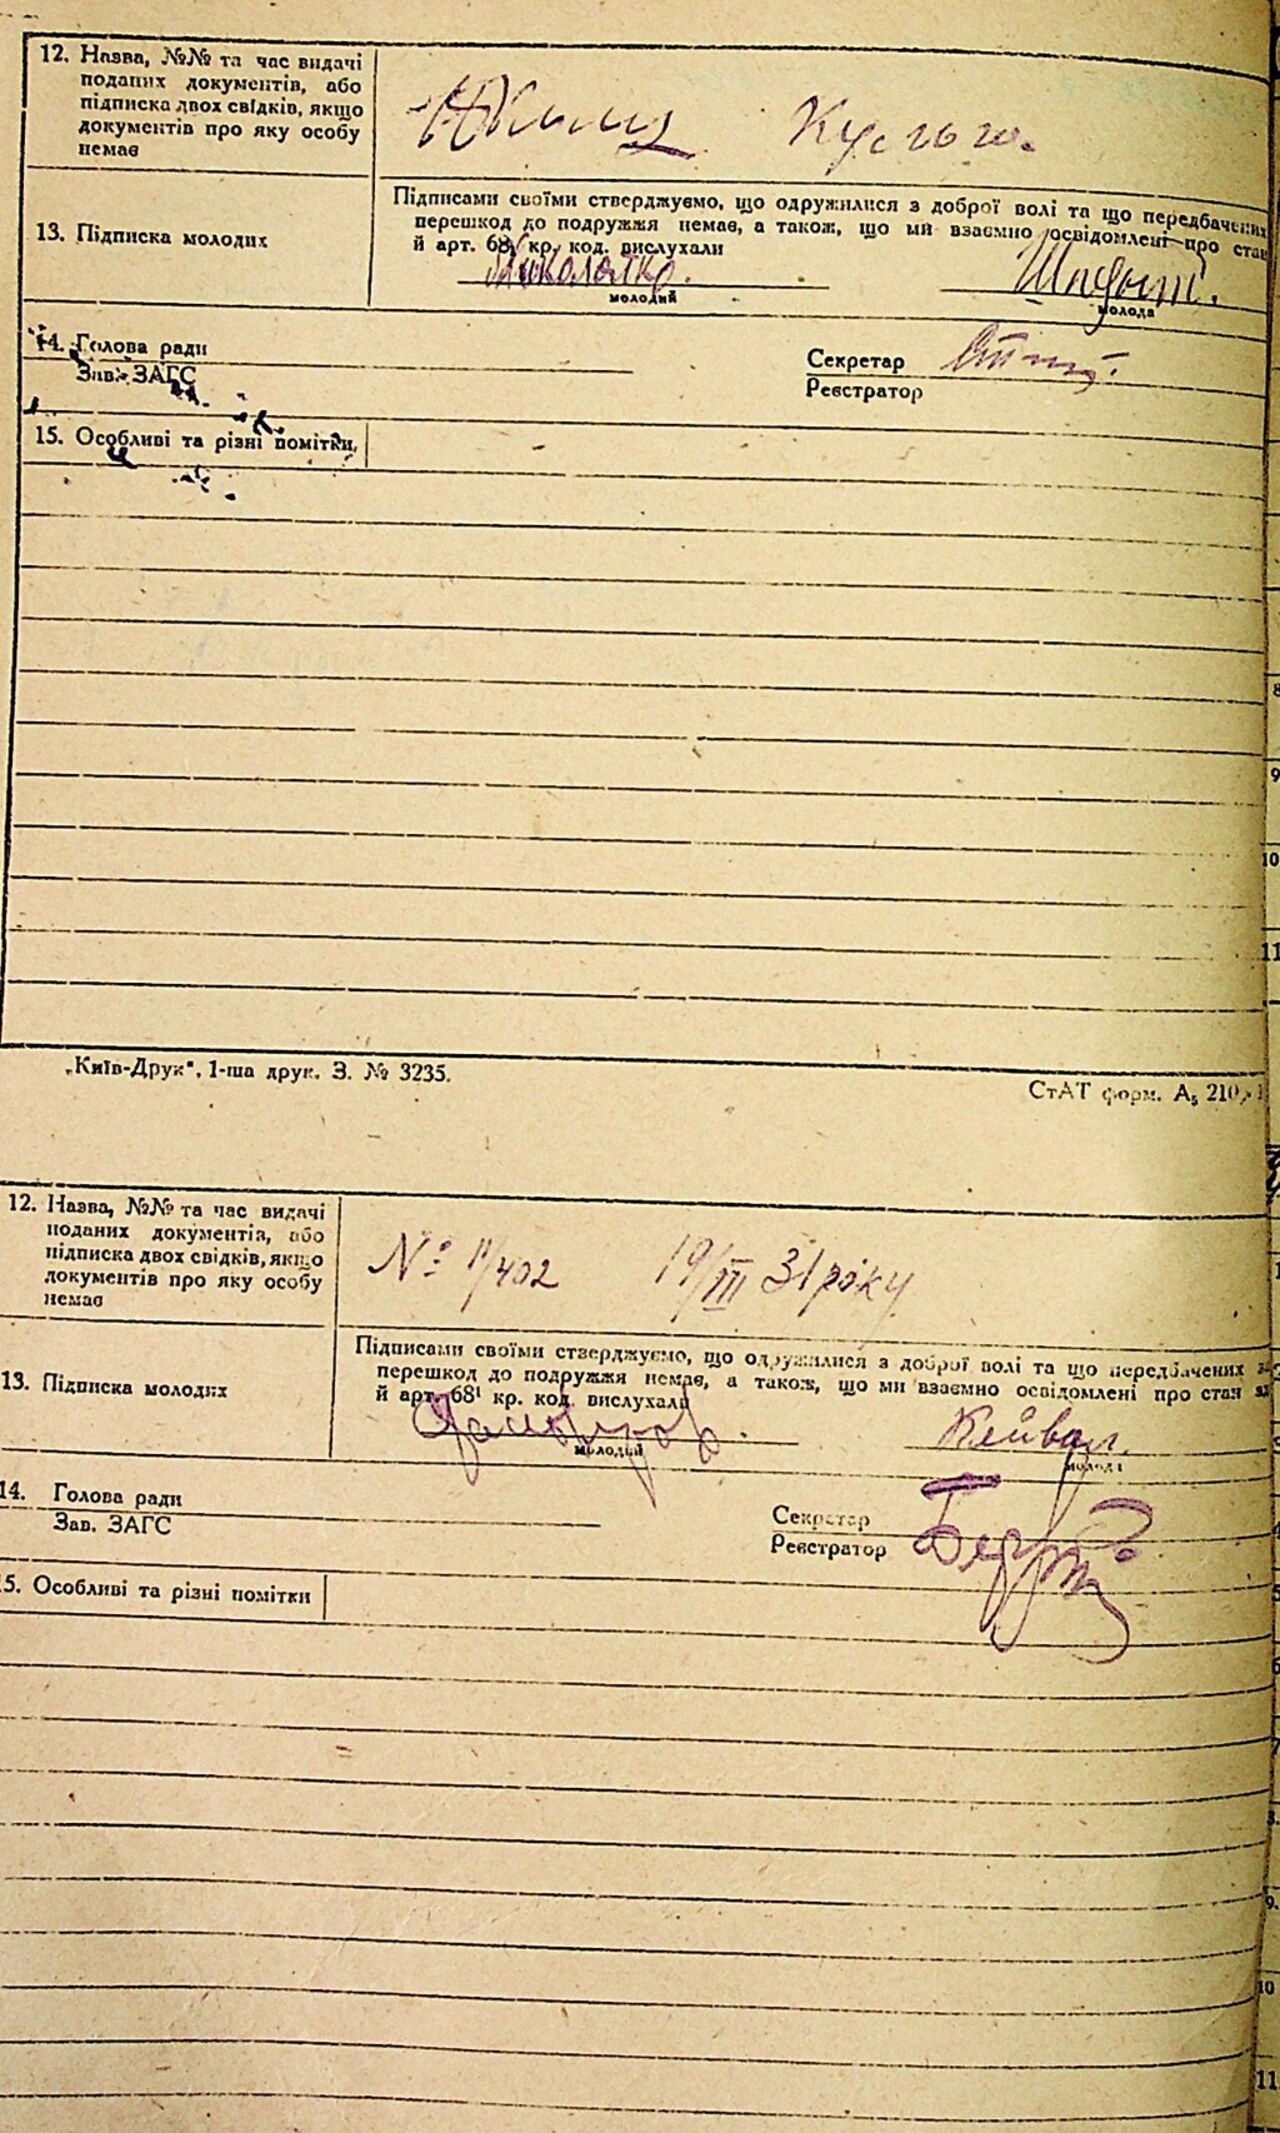 12. Назва, №№ та час видачі
поданих документів, або
підписка двох свідків, якщо
документів про яку особу
немає
Підписами своїми стверджуємо, що одружилися з доброї волі та що передбачених
перешкод до подружжя немає, а також, що ми взаємно освідомлені про стан
й арт. 68¹ кр. код. вислухали
13. Підписка молодих
молодий
молода
14. Голова ради
Зав. ЗАГС
Секретар
Реєстратор
15. Особливі та різні помітки
„Київ-Друк", 1-ша друк. З. № 3235.
СтАТ форм. А₅ 210
12. Назва, №№ та час видачі
поданих документів, або
підписка двох свідків, якщо
документів про яку особу
немає
№ 11/402 19/III 31 року
Підписами своїми стверджуємо, що одружилися з доброї волі та що передбачених
перешкод до подружжя немає, а також, що ми взаємно освідомлені про стан
й арт. 68¹ кр. код. вислухали
13. Підписка молодих
молодий
молода
14. Голова ради
Зав. ЗАГС
Секретар
Реєстратор
15. Особливі та різні помітки
8
9
10
11
9.
10
11